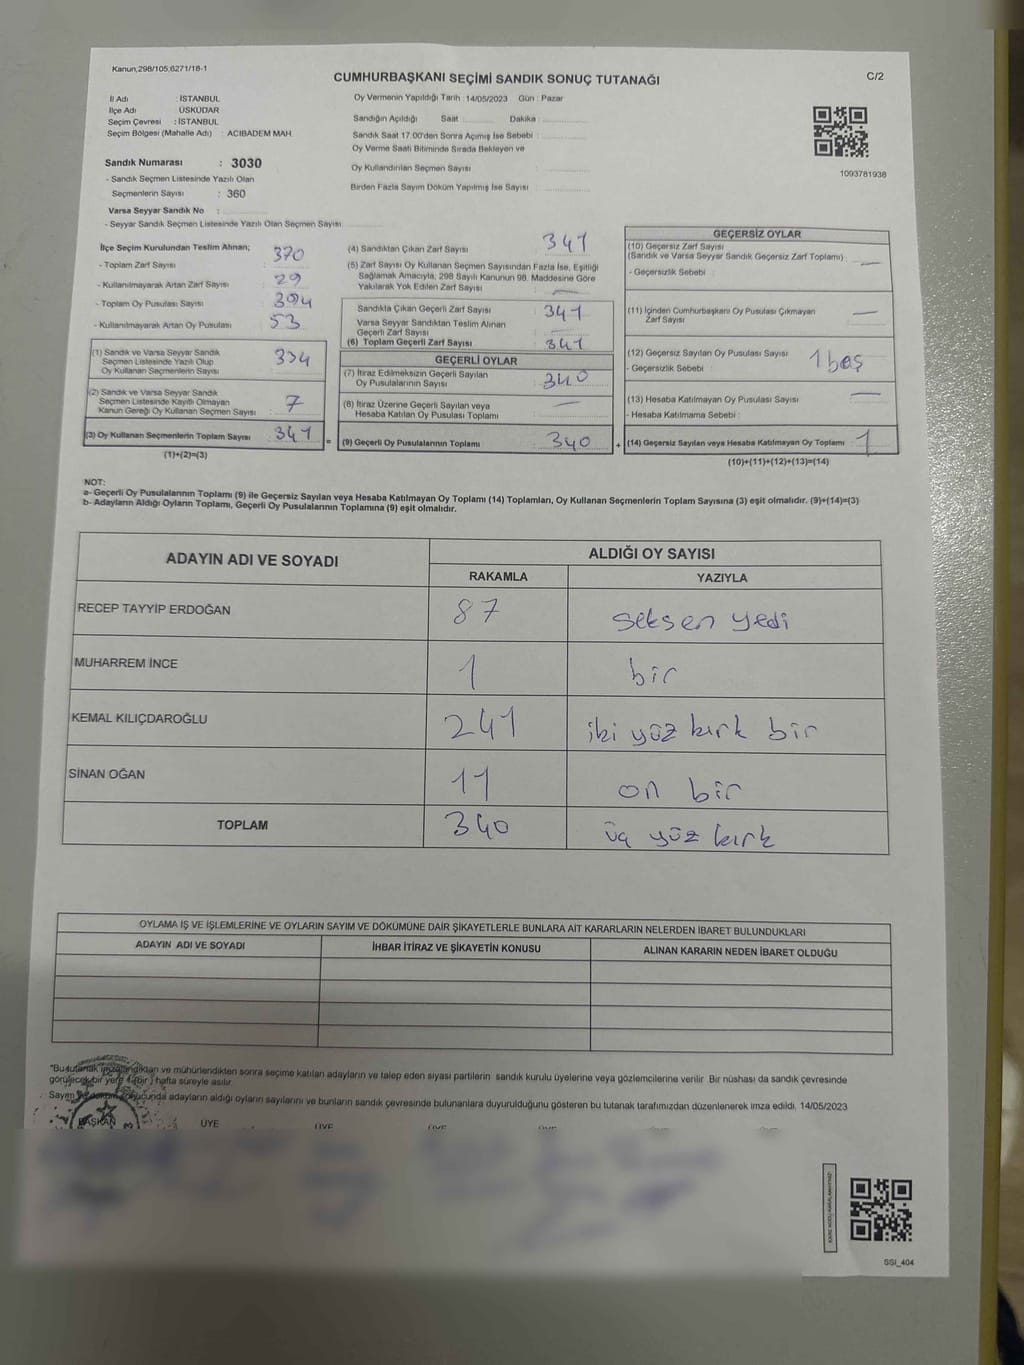 Kanun,298/105,6271/18-1
CUMHURBAŞKANI SEÇİMİ SANDIK SONUÇ TUTANAĞI
C/2
İl Adı : İSTANBUL
İlçe Adı : ÜSKÜDAR
Seçim Çevresi : İSTANBUL
Seçim Bölgesi (Mahalle Adı) : ACIBADEM MAH.
Sandık Numarası : 3030
- Sandık Seçmen Listesinde Yazılı Olan
Seçmenlerin Sayısı : 360
Varsa Seyyar Sandık No :
- Seyyar Sandık Seçmen Listesinde Yazılı Olan Seçmen Sayısı:
Oy Vermenin Yapıldığı Tarih : 14/05/2023 Gün : Pazar
Sandığın Açıldığı Saat : Dakika :
Sandık Saat 17.00'den Sonra Açımış İse Sebebi :
Oy Verme Saati Bitiminde Sırada Bekleyen ve
Oy Kullandırılan Seçmen Sayısı :
Birden Fazla Sayım Döküm Yapılmış İse Sayısı :
1093781938
İlçe Seçim Kurulundan Teslim Alınan;
- Toplam Zarf Sayısı 370
- Kullanılmayarak Artan Zarf Sayısı 29
- Toplam Oy Pusulası Sayısı 394
- Kullanılmayarak Artan Oy Pusulası 53
(1) Sandık ve Varsa Seyyar Sandık
Seçmen Listesinde Yazılı Olup
Oy Kullanan Seçmenlerin Sayısı 334
(2) Sandık ve Varsa Seyyar Sandık
Seçmen Listesinde Kayıtlı Olmayan
Kanun Gereği Oy Kullanan Seçmen Sayısı 7
(3) Oy Kullanan Seçmenlerin Toplam Sayısı 341
(1)+(2)=(3)
(4) Sandıktan Çıkan Zarf Sayısı 341
(5) Zarf Sayısı Oy Kullanan Seçmen Sayısından Fazla İse, Eşitliği
Sağlamak Amacıyla, 298 Sayılı Kanunun 98. Maddesine Göre
Yakılarak Yok Edilen Zarf Sayısı —
Sandıkta Çıkan Geçerli Zarf Sayısı 341
Varsa Seyyar Sandıktan Teslim Alınan
Geçerli Zarf Sayısı —
(6) Toplam Geçerli Zarf Sayısı 341
GEÇERLİ OYLAR
(7) İtiraz Edilmeksizin Geçerli Sayılan
Oy Pusulalarının Sayısı 340
(8) İtiraz Üzerine Geçerli Sayılan veya
Hesaba Katılan Oy Pusulası Toplamı —
= (9) Geçerli Oy Pusulalarının Toplamı 340
GEÇERSİZ OYLAR
(10) Geçersiz Zarf Sayısı
(Sandık ve Varsa Seyyar Sandık Geçersiz Zarf Toplamı) —
- Geçersizlik Sebebi :
(11) İçinden Cumhurbaşkanı Oy Pusulası Çıkmayan
Zarf Sayısı —
(12) Geçersiz Sayılan Oy Pusulası Sayısı 1 boş
- Geçersizlik Sebebi :
(13) Hesaba Katılmayan Oy Pusulası Sayısı —
- Hesaba Katılmama Sebebi :
+ (14) Geçersiz Sayılan veya Hesaba Katılmayan Oy Toplamı 1
(10)+(11)+(12)+(13)=(14)
NOT:
a- Geçerli Oy Pusulalarının Toplamı (9) ile Geçersiz Sayılan veya Hesaba Katılmayan Oy Toplamı (14) Toplamları, Oy Kullanan Seçmenlerin Toplam Sayısına (3) eşit olmalıdır. (9)+(14)=(3)
b- Adayların Aldığı Oyların Toplamı, Geçerli Oy Pusulalarının Toplamına (9) eşit olmalıdır.
ADAYIN ADI VE SOYADI ALDIĞI OY SAYISI
RAKAMLA YAZIYLA
RECEP TAYYİP ERDOĞAN 87 seksen yedi
MUHARREM İNCE 1 bir
KEMAL KILIÇDAROĞLU 241 iki yüz kırk bir
SİNAN OĞAN 11 on bir
TOPLAM 340 üç yüz kırk
OYLAMA İŞ VE İŞLEMLERİNE VE OYLARIN SAYIM VE DÖKÜMÜNE DAİR ŞİKAYETLERLE BUNLARA AİT KARARLARIN NELERDEN İBARET BULUNDUKLARI
ADAYIN ADI VE SOYADI İHBAR İTİRAZ VE ŞİKAYETİN KONUSU ALINAN KARARIN NEDEN İBARET OLDUĞU
"Bu tutanak imzalandıktan ve mühürlendikten sonra seçime katılan adayların ve talep eden siyasi partilerin sandık kurulu üyelerine veya gözlemcilerine verilir. Bir nüshası da sandık çevresinde
görülecek bir yere 1 (bir) hafta süreyle asılır.
Sayım ve döküm sonucunda adayların aldığı oyların sayılarını ve bunların sandık çevresinde bulunanlara duyurulduğunu gösteren bu tutanak tarafımızdan düzenlenerek imza edildi. 14/05/2023
BAŞKAN ÜYE ÜYE ÜYE ÜYE
SSI_404